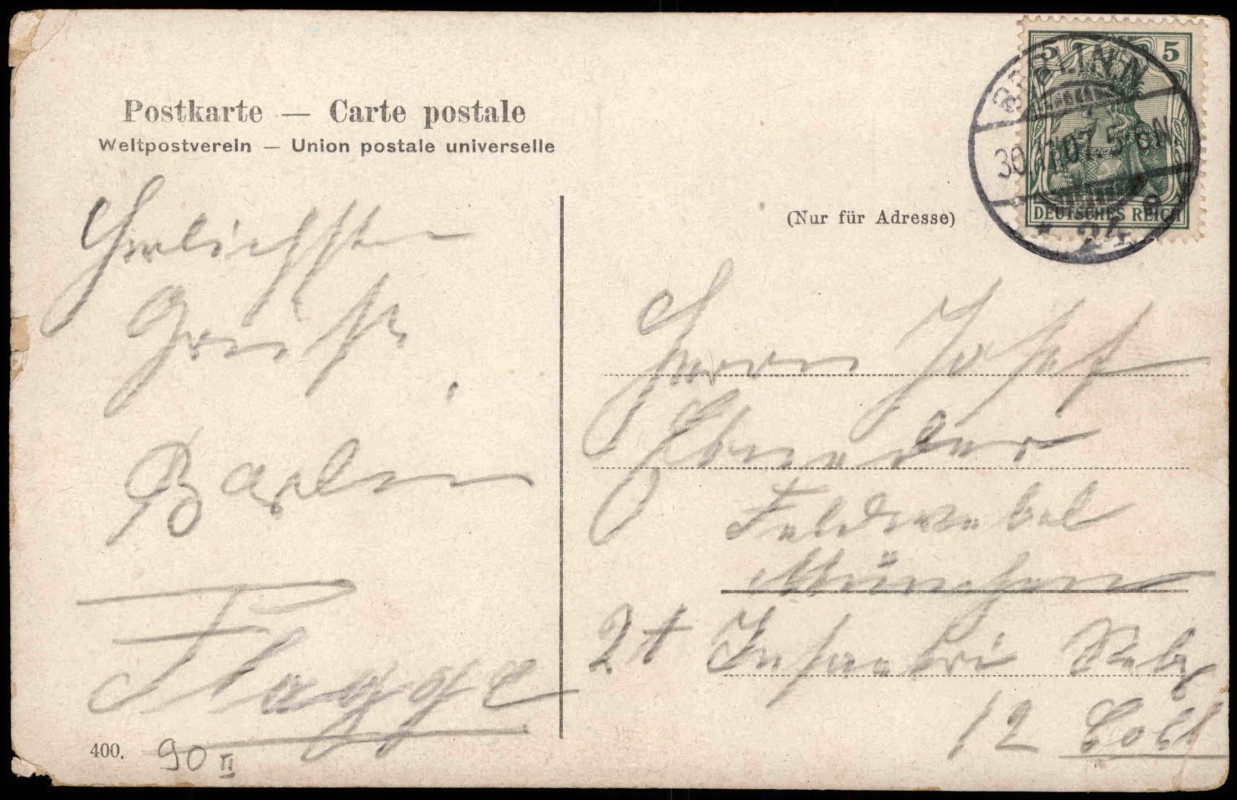 Postkarte — Carte postale
Weltpostverein — Union postale universelle
BERLIN N
30.11.07. 5-6N
* 24 e
5 5
DEUTSCHES REICH
(Nur für Adresse)
Herlichste
Grüße
Berlin
Flagge
400.
90 II
Herrn Josef
Feldwebel
München
2t Infantri
12